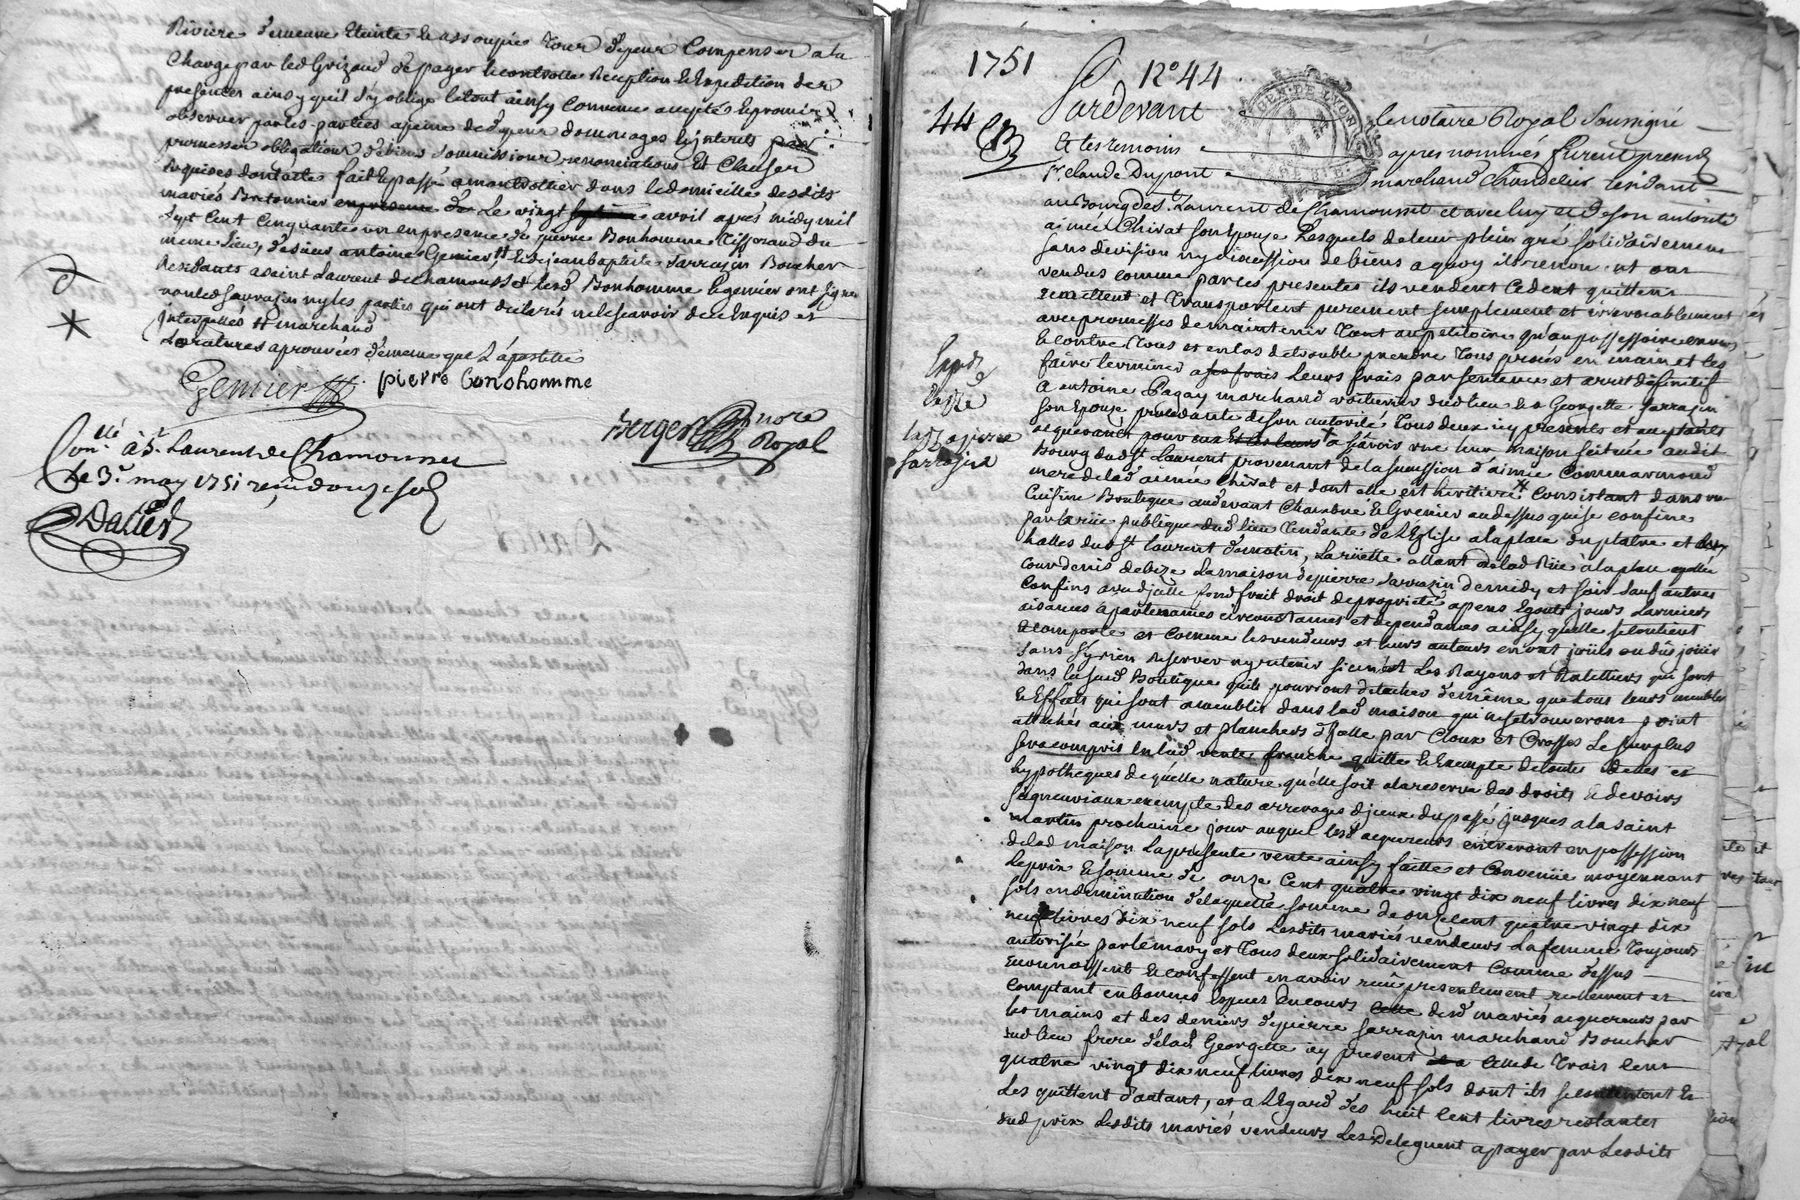 Riviere demeure Eteinte & assoupie Tour depens Compensés a la
Charge par led Grizaud de payer le controlle Reception & Expedition des
presentes ainsy quil s'y oblige le tout ainsy Convenu accepté & promis
observer par les parties a peine de depens dommages & interets par
promesses obligations de biens soumissions renonciations Et Clauses
Requises dont acte fait & passé a montrottier dans le domicille desdits
mariés Bretonnier en presence de Le vingt septieme avril aprés midy mil
sept Cent Cinquante un en presence de pierre Bonhomme Tisserand du
meme lieu, de sieur antoine Gemier # & de jean baptiste Sarrazin Boucher
Residants a saint Laurent de chamousset lesd Bonhomme & gemier ont signé
non led Sarrazin ny les parties qui ont declarés ne le scavoir de ce Enquis et
Interpellés # marchand
Les ratures aprouvées de meme que L'apostille
Gemier pierre bonohomme
Berger nore
Royal
Conllé à St Laurent de Chamousset
Le 3e may 1751 reçu douze sols
Dalier
1751 N°44
44
Pardevant Le notaire Royal Soussigné
& les temoins apres nommés furent presents
sr. Claude Dupont marchand Chandelier residant
au Bourg de St. Laurent de Chamousset et avec luy et de son autorité
aimée Chirat son Epouze Lesquels de leur plein gré solidairement
sans division ny discussion de biens a quoy ils renoncent ont
vendus comme par ces presentes ils vendent Cedent quittent
remettent et Transportent purement simplement et irrevocablement
avec promesses de maintenir Tant au petitoire qu'au possessoire envers
& Contre Tous et en Cas de trouble prendre Tous procés en main et les
faire terminer a ses frais Leurs frais par sentence et arret definitif
A antoine Pagay marchand voiturier dud lieu & a Georgette Sarrazin
son Epouze procedante de son autorité Tous deux icy presents et acceptants
acquereurs pour eux Et les leurs a scavoir une leur maison scituée audit
Bourg dud St Laurent provenant de la succession d'aimée Commarmond
mere de lad aimée Chirat et dont elle est heritiere # Consistant dans une
Cuisine Boutique au devant Chambre & Grenier au dessus qui se confine
par la rüe publique dud lieu Tendante de L'Eglise a la place du platre et des
halles dud St laurent de matin, La rüette allant de lad Rüe à la place appellée
Cour denis de bize La maison de pierre Sarrazin de midy et soir sauf autres
Confins avec d'jcelle fond frait droit de proprieté apens Egouts jours Larmiers
aisances apartenances circonstances et dependances ainsy qu'elle se Contient
& Comporte et Comme les vendeurs et leurs auteurs en ont joüis ou dûs joüir
sans s'y rien Reserver ny retenir si ce n'est Les Rayons et Ratelliers qui sont
dans lad Boutique quils pourront detacher de même que tous leurs meubles
& Effets qui sont ameublis dans lad maison qui ne se trouverons point
attachés aux murs et planchers d'jcelle par Cloux et Crosses Le surplus
sera compris en lad vente franche quitte & Exempte de toutes dettes et
hypotheques de quelle nature qu'elle soit a la reserve des droits & devoirs
seigneuriaux exempte des arrerages d'jceux du passé jusques a la saint
martin prochaine jour auquel lesd acquereurs entreront en possession
de lad maison La presente vente ainsy faitte et Convenüe moyennant
Le prix & somme de onze Cent quatre vingt dix neuf livres dix neuf
sols en deminution de laquelle somme de onze Cent quatre vingt dix
neuf livres dix neuf sols Lesdits mariés vendeurs La femme Toujours
autorisée par le mary et Tous deux solidairement Comme dessus
Reconnoissent & confessent en avoir reçu presentement réellement et
Comptant en bonnes Especes du cours Celle desd mariés acquereurs par
les mains et des deniers de pierre Sarrazin marchand Boucher
dud lieu frere de lad Georgette icy present Celle de Trois Cent
quatre vingt dix neuf livres dix neuf sols dont ils se contentent &
Les quittent d'autant, et a L'Egard des huit Cent livres restantes
dud prix Lesdits mariés vendeurs Les Deleguent a payer par Lesdits